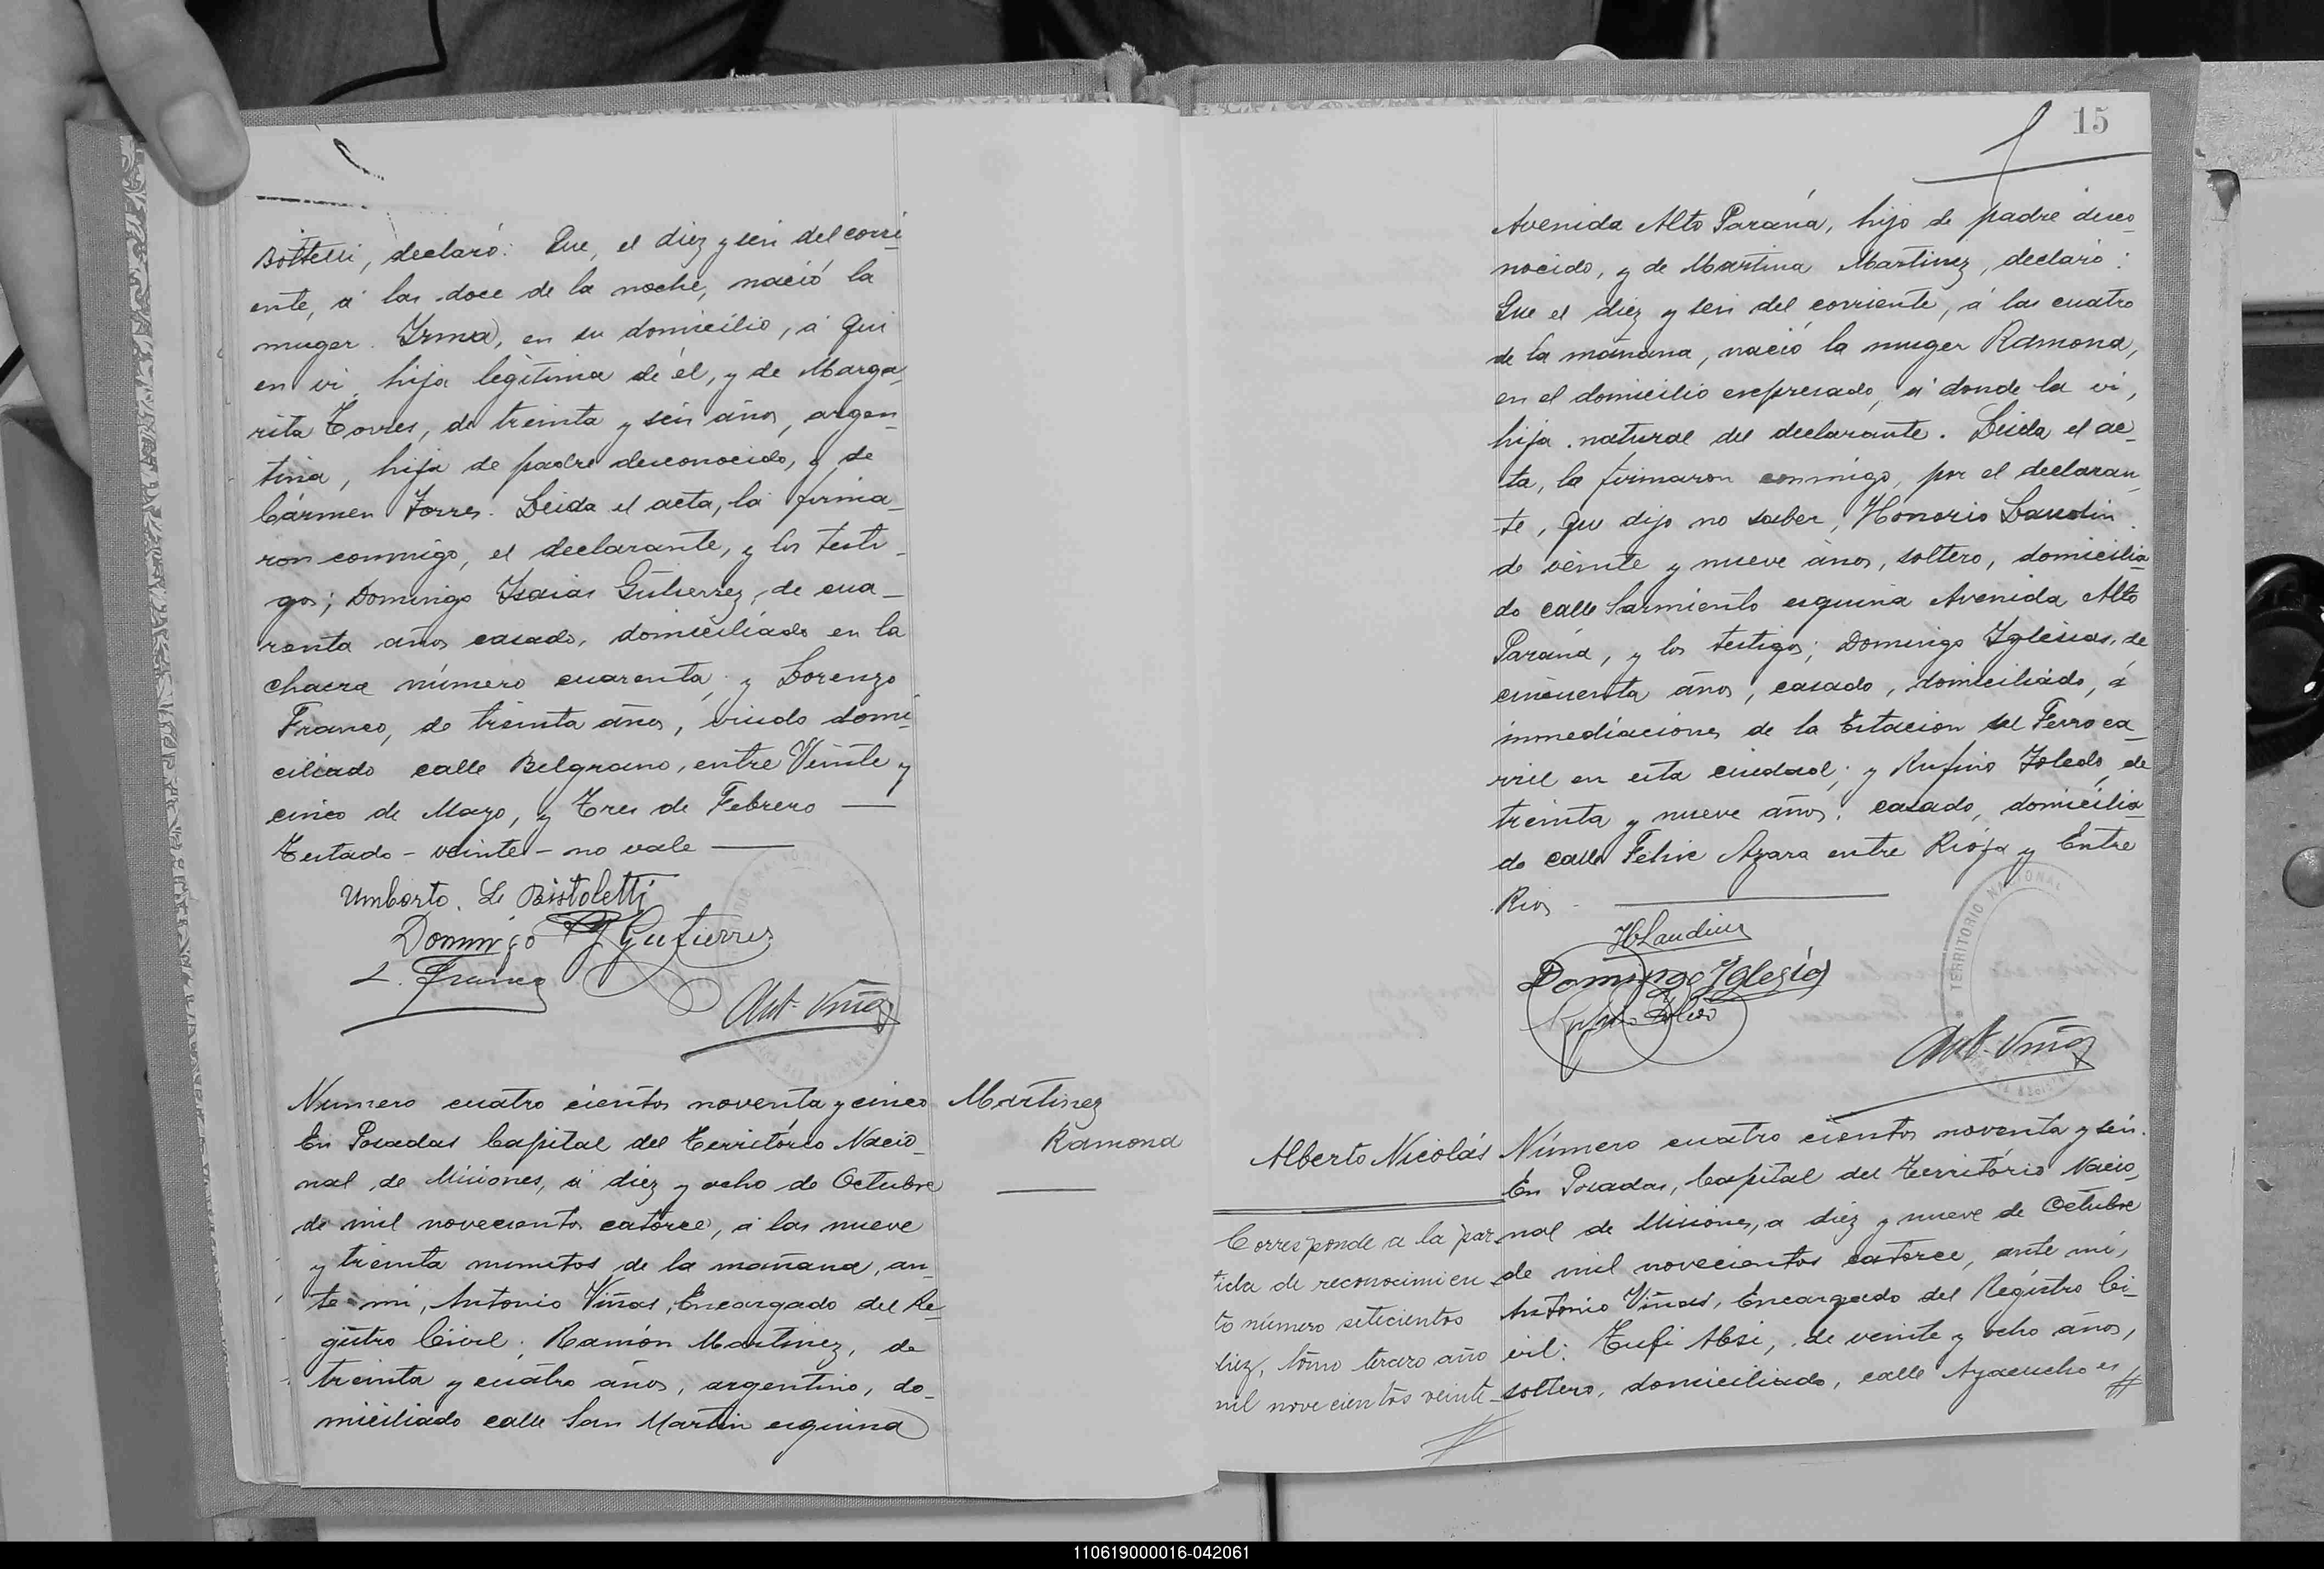 Bottelli, declaró: Que, el diez y seis del corri
ente, á las doce de la noche, nació la
muger Irma, en su domicilio, á qui
en vi, hija legítima de él, y de Marga
rita Torres, de treinta y seis años, argen
tina, hija de padre desconocido, y de
Cármen Torres. Leida el acta, la firma
ron conmigo, el declarante, y los testi
gos; Domingo Isaias Gutierrez, de cua
renta años casado, domiciliado en la
chacra número cuarenta; y Lorenzo
Franco, de treinta años, viudo domi
ciliado calle Belgrano, entre Veinte y
cinco de Mayo, y Tres de Febrero —
Testado - veinte - no vale —
Umberto. Le Bistoletti
Domingo Y Gutierrez
L. Franco
Ant. Viñas
Martinez
Ramona
Número cuatro cientos noventa y cinco
En Posadas Capital del Território Nacio
nal de Misiones, á diez y ocho de Octubre
de mil novecientos catorce, á las nueve
y treinta minutos de la mañana, an
te mi, Antonio Viñas, Encargado del Re
gistro Civil, Ramón Martinez, de
treinta y cuatro años, argentino, do
miciliado calle San Martin esquina
15
Avenida Alto Paraná, hijo de padre desco
nocido, y de Martina Martinez, declaró:
Que el diez y seis del corriente, á las cuatro
de la mañana, nació la muger Ramona,
en el domicilio expresado, á donde la vi,
hija natural del declarante. Leida el ac
ta, la firmaron conmigo, por el declaran
te, que dijo no saber, Honorio Laudin
de veinte y nueve años, soltero, domicilia
do calle Sarmiento esquina Avenida Alto
Paraná, y los testigos; Domingo Iglesias, de
cincuenta años, casado, domiciliado, á
inmediaciones de la Estacion del Ferro ca
rril en esta ciudad; y Rufino Toledo, de
treinta y nueve años, casado, domicilia
do calle Felix Azara entre Rioja y Entre
Rios —
H Laudin
Domingo Yglesias
Rufino Toledo
TERRITORIO NACIONAL
Ant. Viñas
Alberto Nicolás
Corresponde a la par
tida de reconocimien
to número setecientos
diez, tomo tercero año
mil novecientos veinte
Número cuatro cientos noventa y seis.
En Posadas, Capital del Território Nacio
nal de Misiones, a diez y nueve de Octubre
de mil novecientos catorce, ante mi,
Antonio Viñas, Encargado del Registro Ci
vil: Tufi Absi, de veinte y ocho años,
soltero, domiciliado, calle Ayacucho es
110619000016-042061